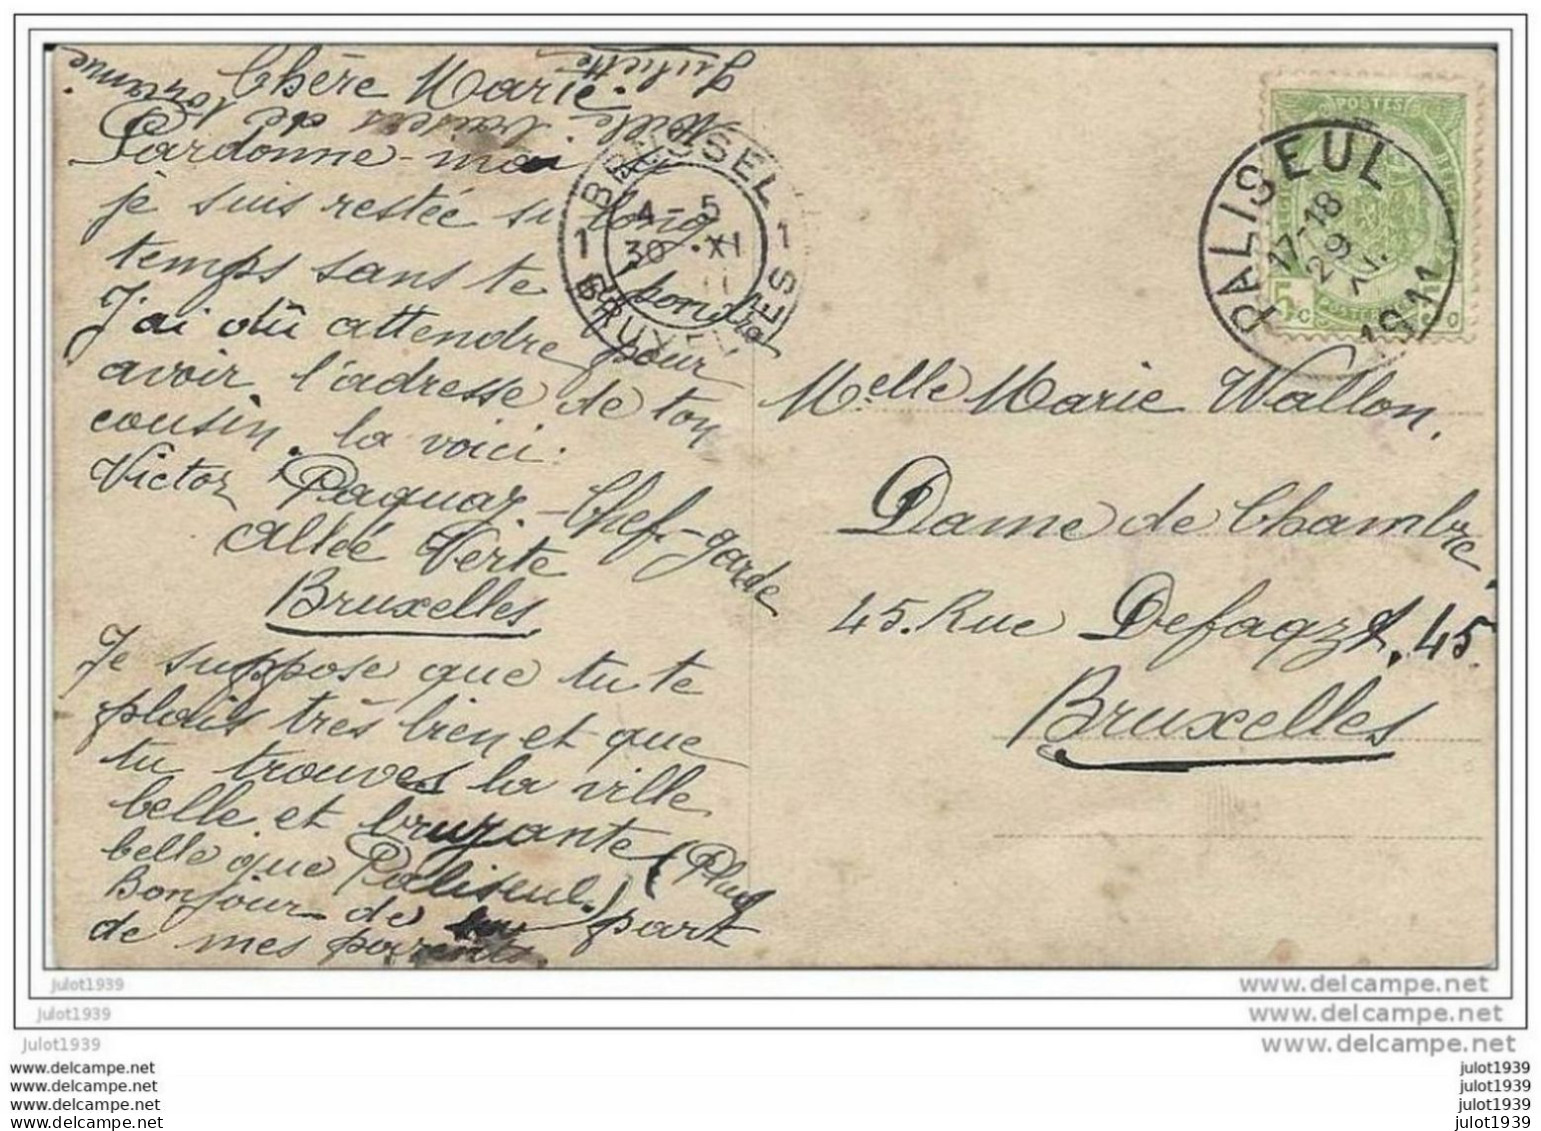 Chère Marie.
Pardonne-moi si
je suis restée si long
temps sans te répondre
J'ai dû attendre pour
avoir l'adresse de ton
cousin. la voici.
Victor Paquay - Chef-garde
Allée Verte
Bruxelles
Je suppose que tu te
plais très bien et que
tu trouves la ville
belle et bruyante (Plus
belle que Paliseul.)
Bonjour de part
de mes parents.
Mille baisers de
Juliette
BRUSSEL
1 4-5 1
30 XI
11
BRUXELLES
POSTES
PALISEUL
17-18
29
XI
1911
5 c
Melle Marie Wallon.
Dame de Chambre.
45. Rue Defaqz, 45.
Bruxelles
julot1939
www.delcampe.net
julot1939
www.delcampe.net
julot1939
www.delcampe.net
www.delcampe.net
julot1939
www.delcampe.net
julot1939
www.delcampe.net
julot1939
www.delcampe.net
julot1939